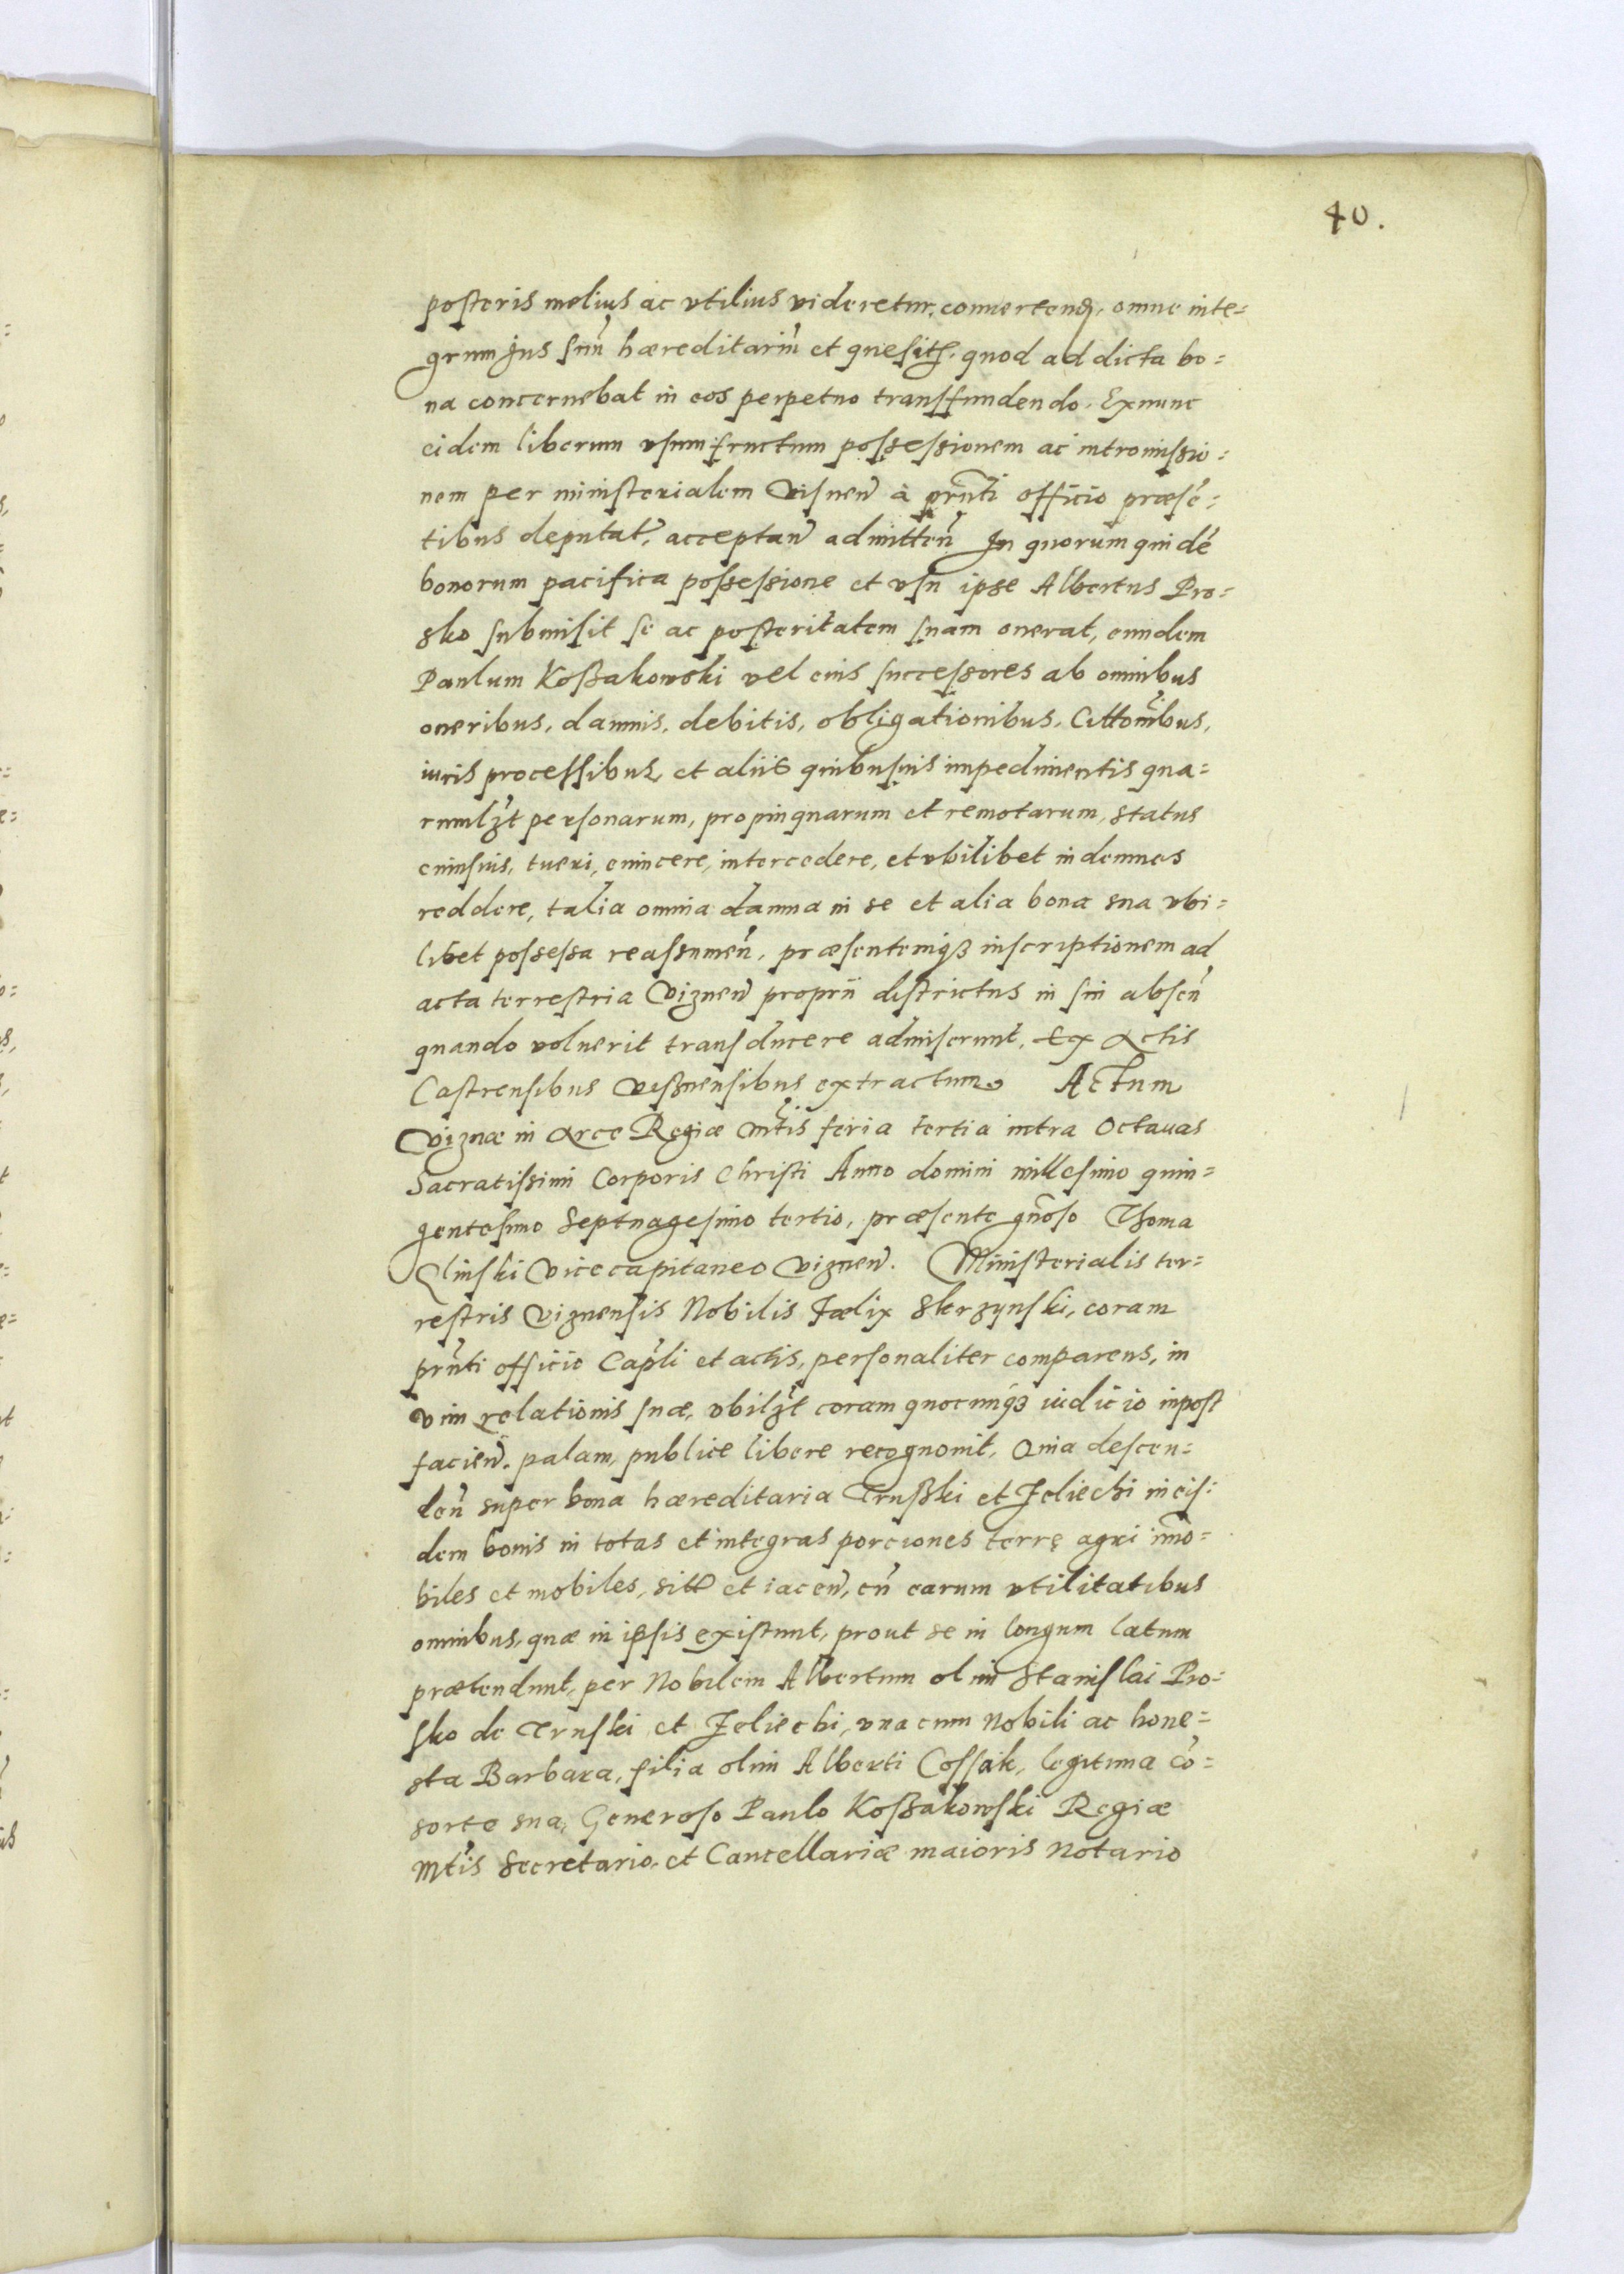 40.
posteris melius ac vtilius videretur, conuertend, omne inte=
grum jus suũ hæreditariũ et quesitũ, quod ad dicta bo=
na concernebat in eos perpetuo transfundendo. Exnunc
eidem liberum vsumfructum possessionem ac intromissio=
nem per ministerialem Visnen̄ à prñti officio præsẽ=
tibus deputat̄, acceptan̄ admitten̄ In quorum quidẽ
bonorum pacifica possessione et vsu ipse Albertus Pro=
sko submisit se ac posteritatem suam onerat, eundem
Paulum Koßakowski vel eius successores ab omnibus
oneribus, damnis, debitis, obligationibus, Cittoñibus,
iuris processibus, et aliis quibusuis impedimentis qua=
rumlꝫt personarum, propinquarum et remotarum, status
cuiusuis, tueri, euincere, intercedere, et vbilibet indemnes
reddere, talia omnia damna in se et alia bona sua vbi=
libet possessa reassumen̄, præsentemqꝫ inscriptionem ad
acta terrestria Viznen̄ proprii districtus in sui absen̄
quando voluerit transducere admiserunt. Ex Actis
Castrensibus Visznensibus extractum. Actum
Viznæ in Arce Regiæ Mt̃is feria tertia intra Octauas
Sacratissimi Corporis Christi Anno domini millesimo quin=
gentesimo Septuagesimo tertio, præsente gñoso Thoma
Olinski Vicecapitaneo Viznen̄. Ministerialis ter=
restris Viznensis Nobilis Fælix Skrzynski, coram
prñti officio Cap̃li et actis, personaliter comparens, in
vim relationis suæ, vbilꝫt coram quocunqꝫ iudicio inpost
facien̄. palam, publice libere recognouit, Quia descen=
den̄ super bona hæreditaria Trußki et Jeliechi in eis=
dem bonis in totas et integras porciones terrę agri im̃o=
biles et mobiles, sitt̄ et iacen̄, cũ earum vtilitatibus
omnibus, quæ in ipsis existunt, prout se in longum latum
prætendunt, per Nobilem Albertum olim Stanislai Pro=
sko de Truski et Jeliechi, vna cum Nobili ac hone=
sta Barbara, filia olim Alberti Cossak, legitima cõ=
sorte sua, Generoso Paulo Koßakowski Regiæ
Mt̃is Secretario, et Cancellariæ maioris Notario